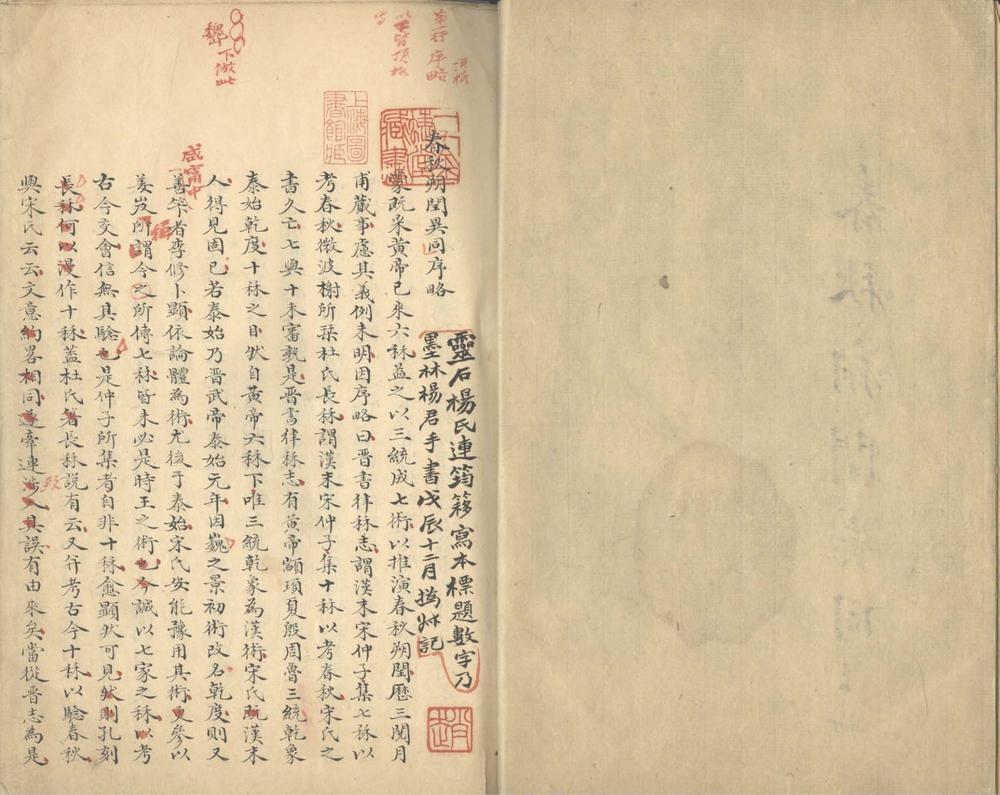 第一行序略頂格
以下皆頂格寫
上海圖書館藏
春秋朔閏異同序略
靈石楊氏連筠簃寫本標題數字乃
墨林楊君手書戊辰十二月撝叔記
趙
蒙既采黃帝已來六秝益之以三統成七術以推演春秋朔閏歷三閱月
甫蕆事慮其義例未明因序略曰晉書律秝志謂漢末宋仲子集七秝以
考春秋微波榭所栞杜氏長秝謂漢末宋仲子集十秝以考春秋宋氏之
書久亡七與十未審孰是晉書律秝志有黃帝顓頊夏殷周魯三統乾象
泰始乾度十秝之目然自黃帝六秝下唯三統乾象為漢術宋氏既漢末
人得見固已若泰始乃晉武帝泰始元年因巍之景初術改名乾度則又
咸甯中
善筭者李修卜顯依論體為術尤後于泰始宋氏安能豫用其術更參以
姜岌所謂今之所傳七秝皆未必是時王之術也今誠以七家之秝以考
稱
古今交會信無其驗也是仲子所集者自非十秝愈顯然可見然則孔刻
長秝何以漫作十秝蓋杜氏箸長秝說有云又并考古今十秝以驗春秋
與宋氏云云文意約畧相同遂牽連涉入其誤有由來矣當從晉志為是
致
下倣此